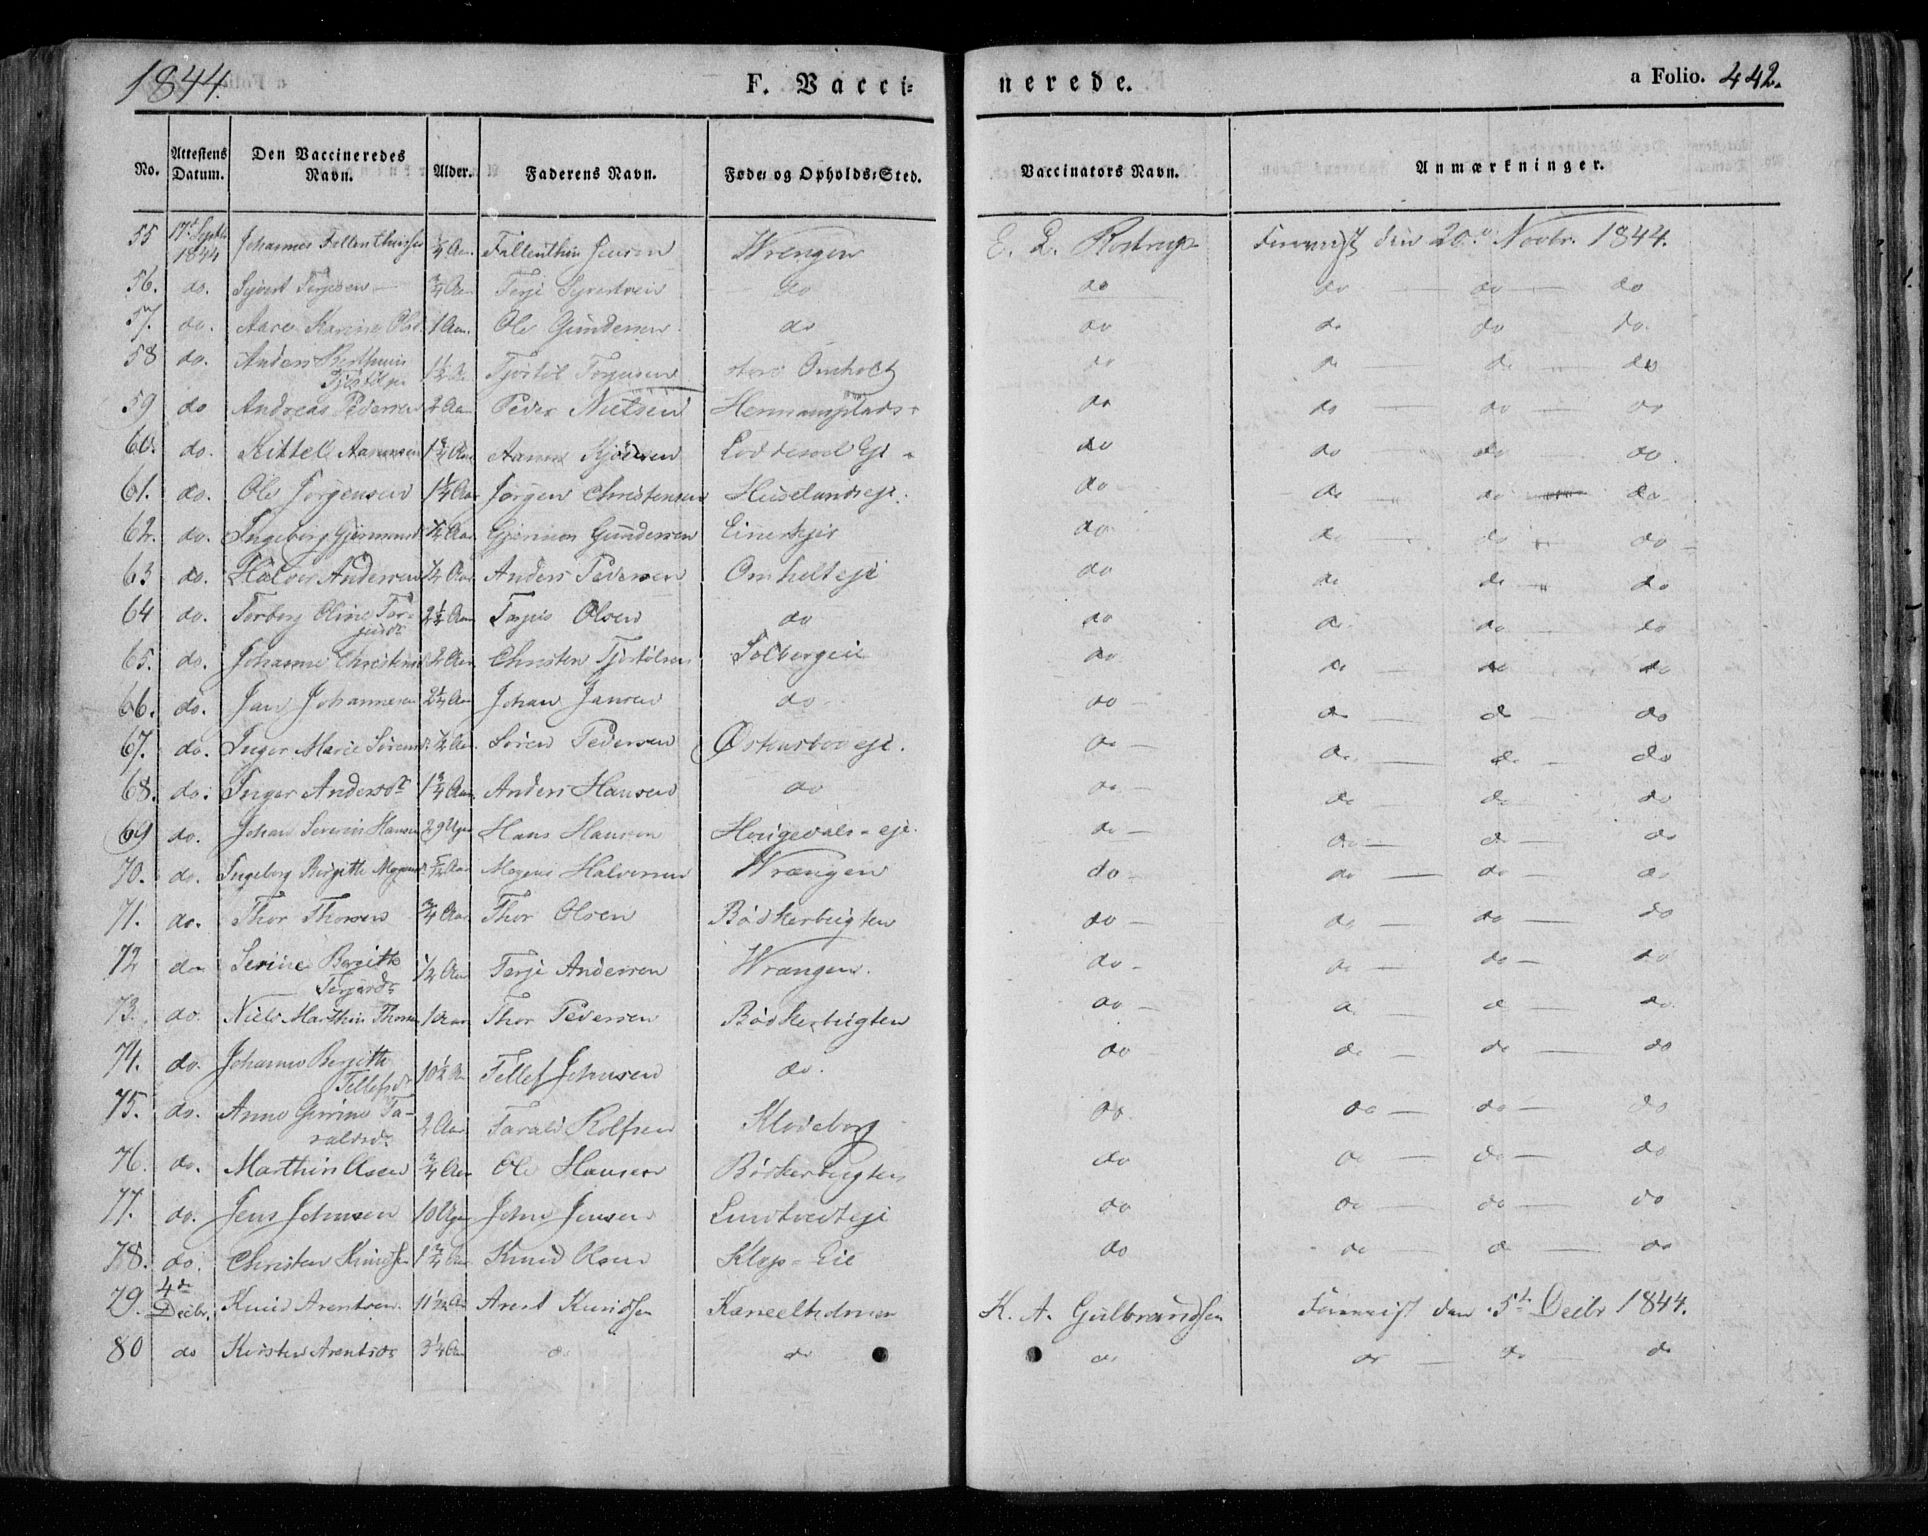 1844. F. Vacci= nerede. a Folio. 442.
No. Attestens Datum. Den Vaccineredes Navn. Alder. Faderens Navn. Føde- og Opholds-Sted. Vaccinators Navn. Anmærkninger.
55 17d Septbr 1844 Johannes Fallenthinsen 3/4 Aar Fallenthin Jensen Wrengen E. L. Rostrup Foreviist den 20d Novbr. 1844.
56. do. Syvert Terjesen 3/4 Aar Terje do do do do do
57. do. Karine 1 Aar. Ole Gundersen do do do do do.
58 do. Anders Berthuin Tjøstølsen 1 1/2 Aar Tjøstøl Omholt do do do do
59 do Andreas Pedersen 2 Aar Peder Nielsen Hermansplads do do do do
60. do. Kittel Aanonsen 1 3/4 Aar Aanon Loddesøl Eje do do do do
61. do. Ole Jørgensen 1 1/4 Aar Jørgen Christensen eje. do do do do
62. do. Ingeborg 1/2 Aar Gundersen do do do do
63 do. Halvor Andersen 1/2 Aar Anders Pedersen Omholteje do do do do
64 do. Torborg Oline Ter-
jesdr 2 1/2 Aar Terjes Olsen do do do do do
65. do. Johanne 2 Aar Christen Tjøstølsen Solbergeie do do do do
66. do. Jan Johannesen 2 1/4 Aar Johan Jansen do. do do do do
67. do. Inger Marie Sørensd. 1/2 Aar. Søren Pedersen eje. do do do do
68. do. Inger Andersdr 1 3/4 Aar Anders Hansen do do do do do
69 do. Johan Severin Hansen 29 Uger Hans Hansen eje. do do do do
70. do. Ingeborg Birgitte Mogensd. Aar Mogens Halvorsen Wrængen do do do do
71. do. Thor Thorsen 3/4 Aar Thor Olsen Bødkerbugten do do do do
72 do Serine Bergitte
Terjesdr 1/2 Aar Terje Andersen Wrængen. do do do do
73. do. Niels Marthin Thorsen Thor Pedersen Bødkerbugten do do do do.
74. do. Johanne Bergitte
Tellefsdr 10 1/2 Aar Tellef Johnsen do. do do do do
75. do. Anne Ta-
raldsdr 2 Aar Tarald Rolfsen Klodeborg do do do do
76. do. Marthin Olsen 3/4 Aar Ole Hansen Bødkerbugten do do do do
77. do. Jens Johnsen 10 Uger John Jensen eje do do do do
78. do. Christen Knudsen 1 3/4 Aar Knud Olsen Klep-Eie do do do do
79. 4de Decbr. Knud Arentsen 11 1/2 Aar Arent Knudsen Kaneelholmen K. A. Gulbrandsen Foreviist den 5te Decbr 1844.
80 do Kirsten Arentsdr 3 1/4 Aar do do do do do do